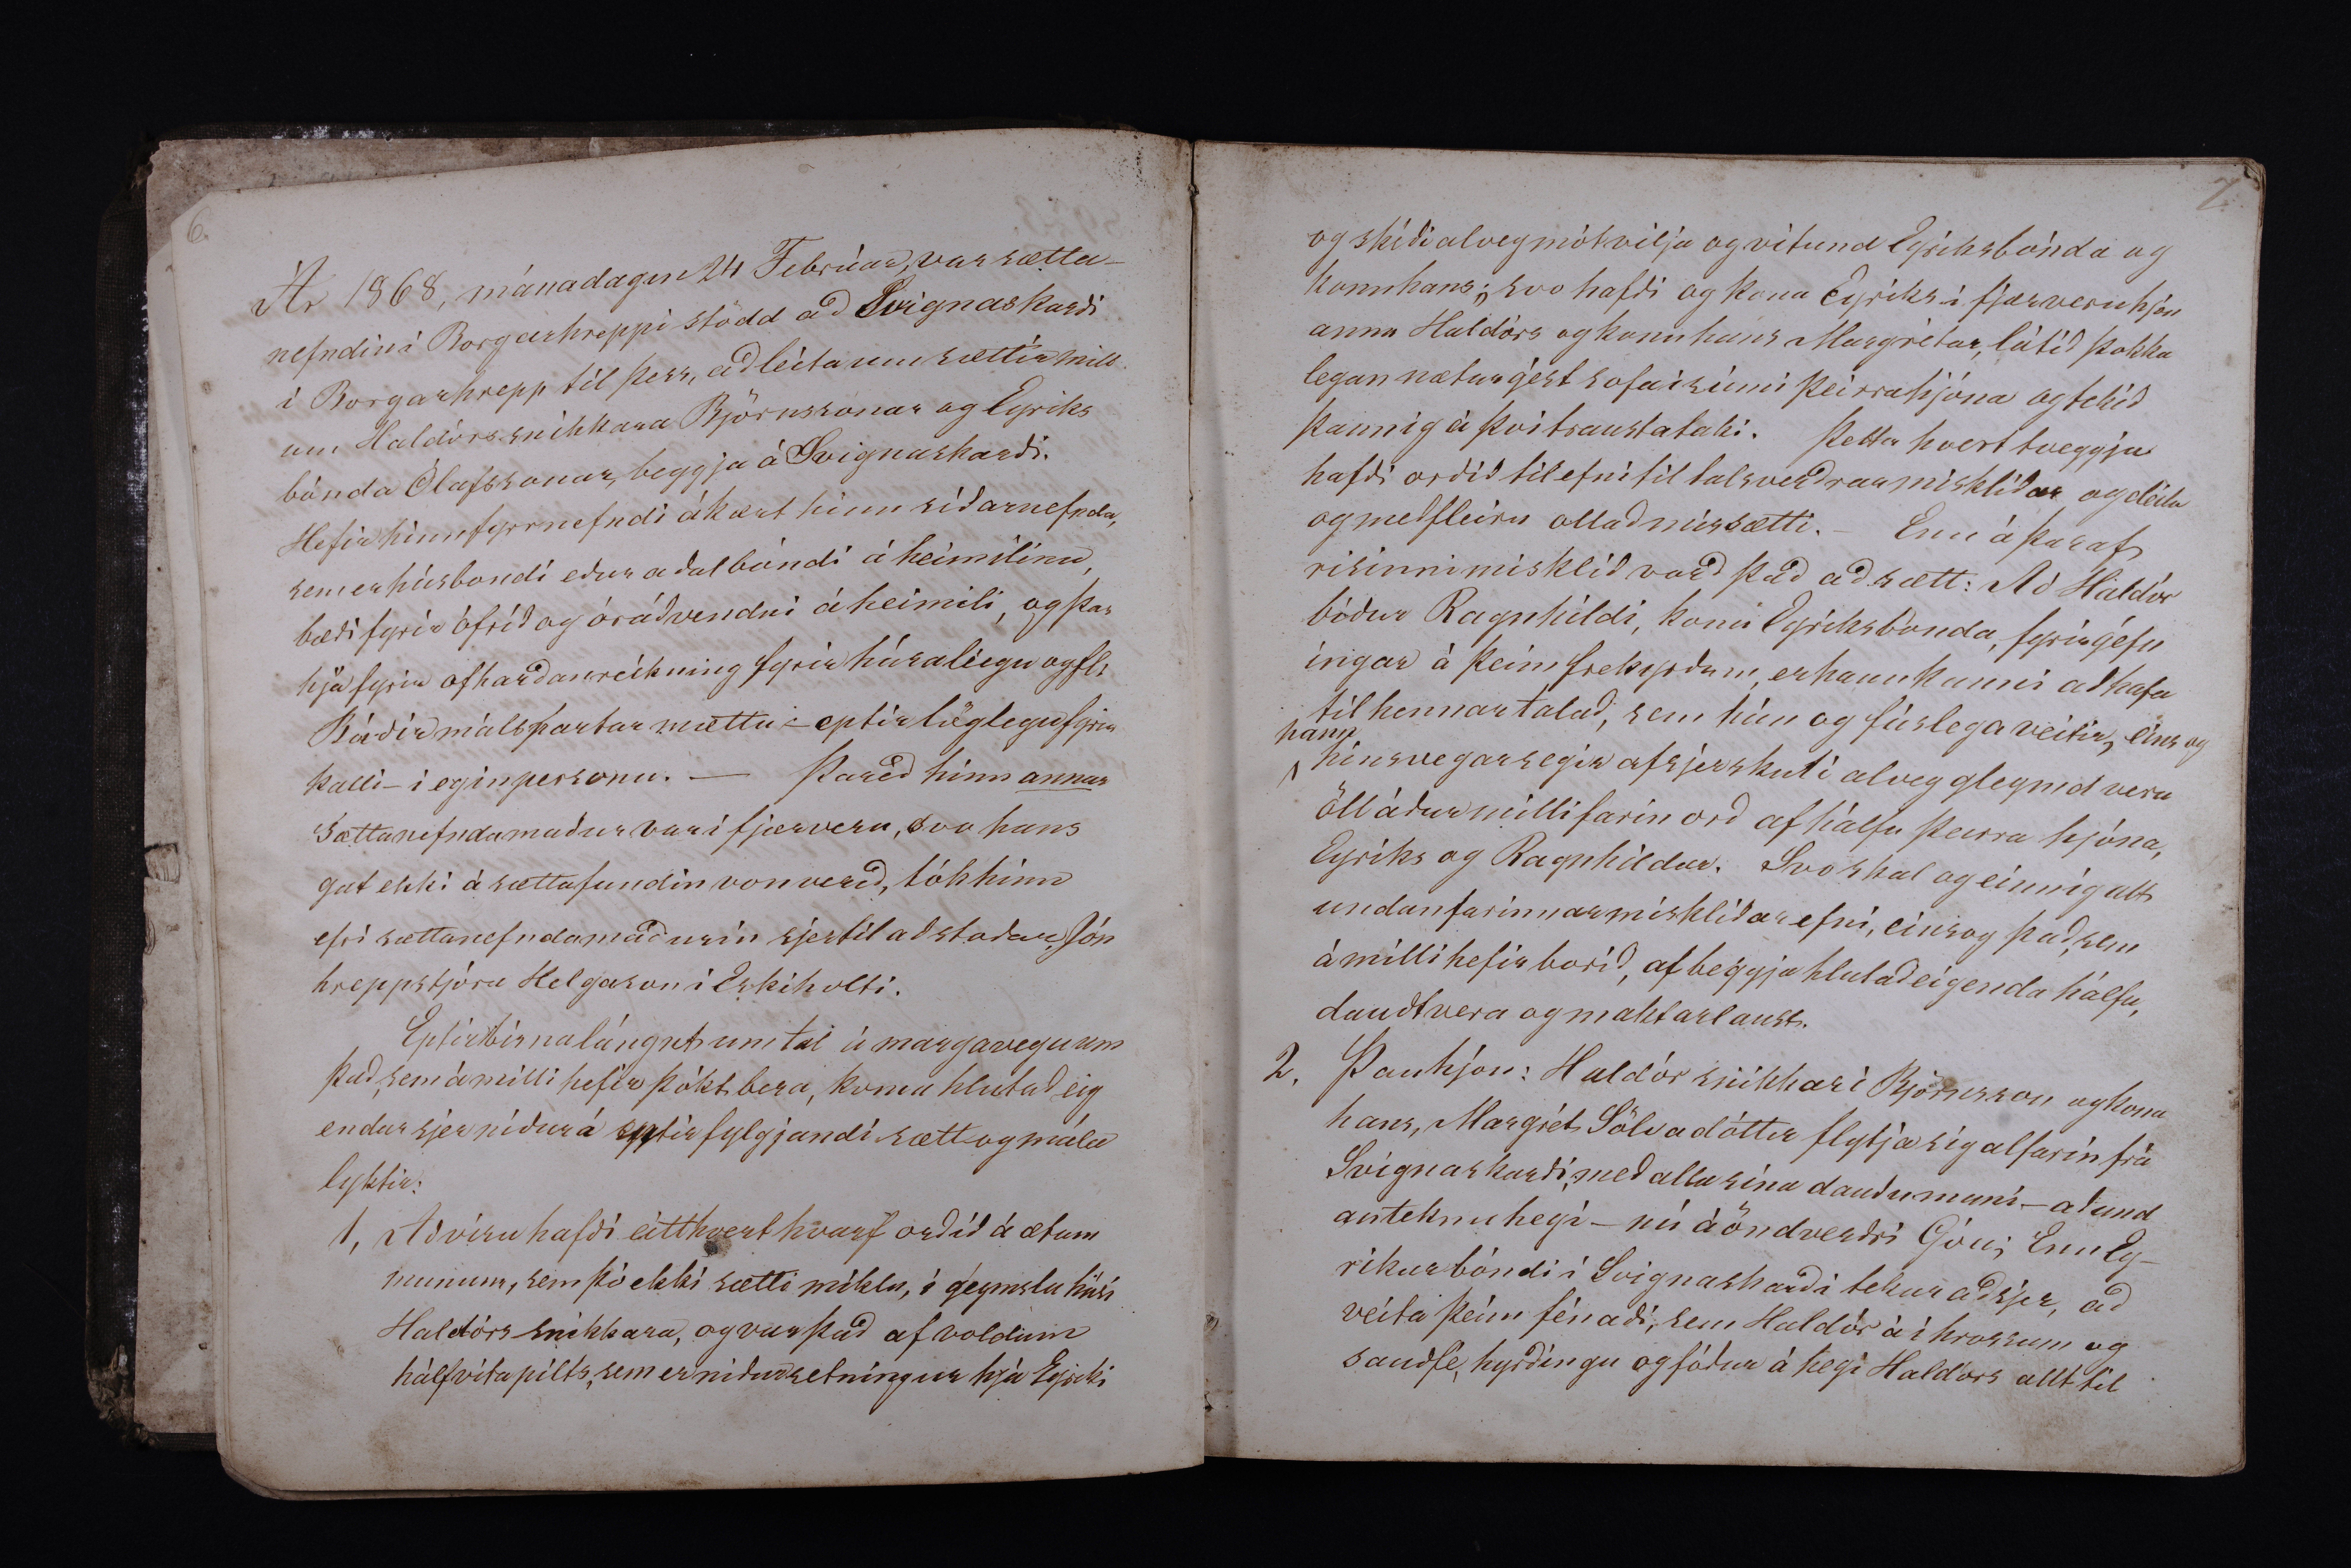 6.
Ár 1868, mánadagin 24 Februar, var sætta-
nefndin í Borgarhreppi stödd að Svignaskarði
í Borgarhrepp til þess, að leita um sættir mill
um Haldórs snikkara Björnssonar og Eyriks
bónda Ólafssonar, beggja á Svignaskarði.
Hefir hinn fyrrnefndi ákært hinn síðarnefnda,
sem er húsbondi eður aðalbóndi á heimilinu,
bæði fyrir ófrið og óráðvendni á heimili, og þar
hjá fyrir ofharðan reikning fyrir húsaleigu og fl:
Báðir málspartar mættu – eptir löglegu fyrir
kalli – í eginpersonu. — Þareð hinn annar
sættanefndamaður var í fjærveru, svo hans
gat ekki á sættafundin von verið, tók hinn
efri sættanefndamaðurin sjer til aðstoðar, Jón
hreppstjóra Helgason í Eskiholti.
Eptir hérna lángut um tal á marga vegu um
það, sem á milli hefir þókt bera, koma hlutað eig
endur sjer niður á eptir fylgjandi sætt og mála
lyktir:
1, Að vísu hafði eitthvert hvarf orðið á ætum
munum, sem þó ekki sætti miklu, í geymslu húsi
Haldórs snikkara, og var það af voldum
hálfvita pilts, sem er niðursetningur hjá Eyriki
7
og skéði alveg mót vilja og vitund Eyriks bónda og
konu hans; svo hafði og kona Eyriks í fjærveru hjón
anna Haldórs og konu hans Margrétar, látið þokka
legan næturgést sofa í rúmi þeirra hjóna og tekið
þannig á því traustataki. Þetta hvert tveggja
hafði orðið tilefni til talsverðrar misklíðar og deilu
og með fleiru ollað missætti. – Enn á þar af
risinni misklíð varð það að sætt: Að Haldór
biður Ragnhildi, konu Eyriks bónda, fyrirgéfn
ingar á þeim frekyrðum, er hann kunni að hafa
til hennar talað, sem hún og fúslega veitir, eins og
hann
hinsvegar segir af sjer skuli alveg gleymd vera
öll áður millifarin orð af hálfu þeirra hjóna,
Eyriks og Ragnhildar. Svo skal og einnig alt
undanfarinnar misklíðar efni, eins og það, sem
á milli hefir borið, af beggja hlutaðeigenda hálfu,
dautt vera og maktarlaust.
2. Þau hjón: Haldór snikkari Björnsson og kona
hans, Margrét Sölvadóttir flytja sig alfarin frá
Svignaskarði, með alla sína dauðu muni – að und
anteknu heyi – nú á öndverðri Góu; Enn Ey-
rikur bóndi í Svignaskarði tekur að sjer, að
veita þeim fénaði, sem Haldór á í hrossum og
sauðfé, hyrðingu og fóður á heyi Haldórs allt til